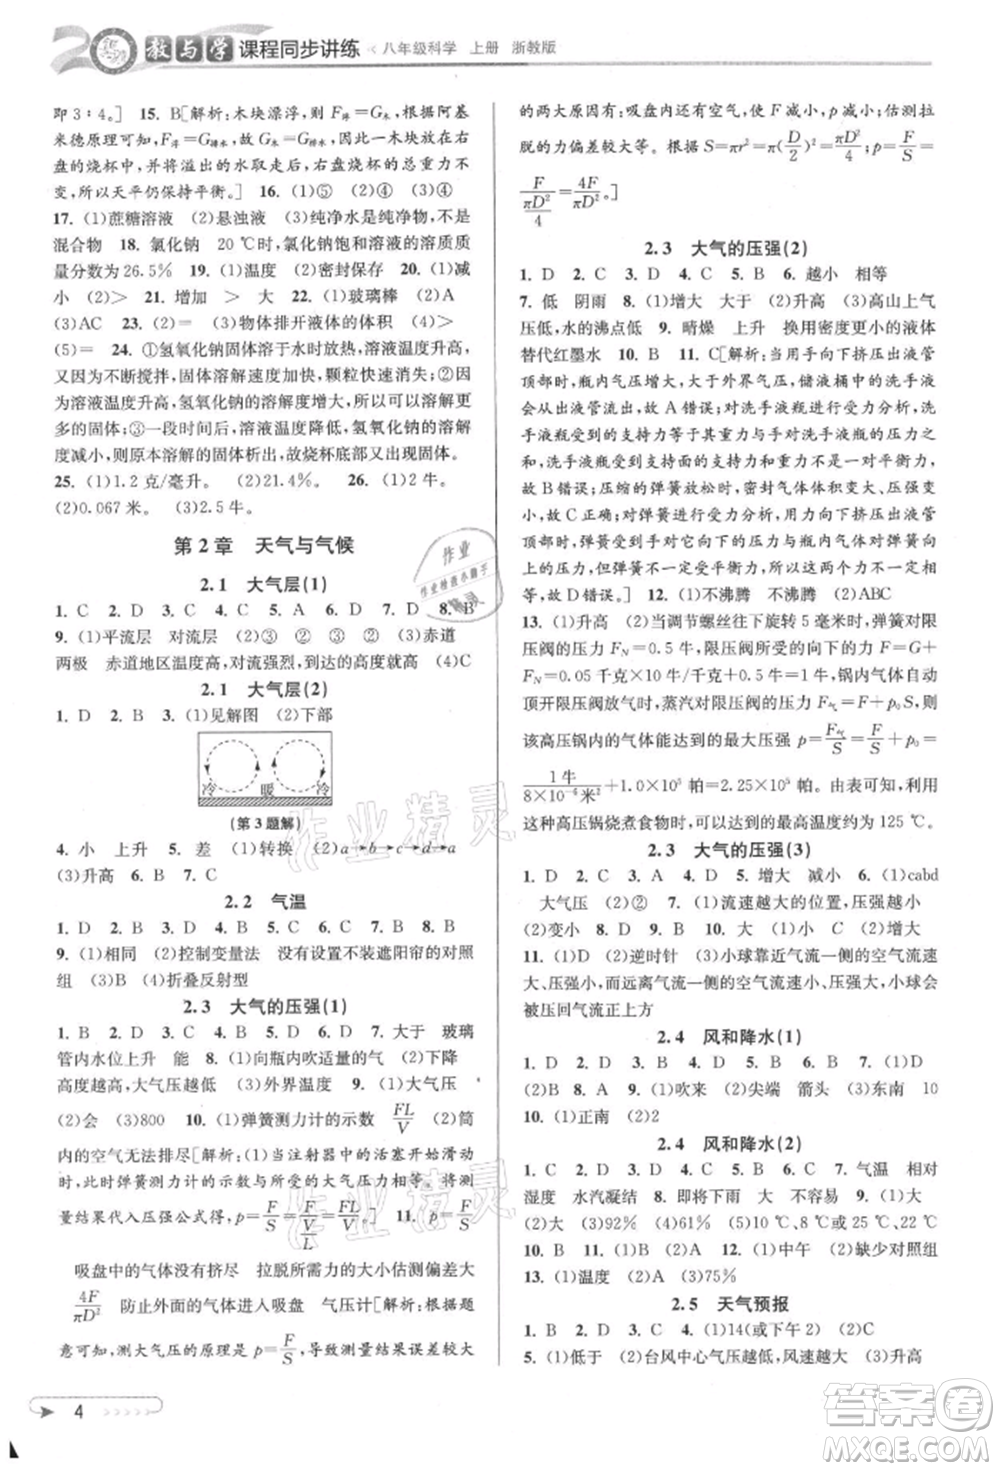 20 教与学 课程同步讲练 <八年级科学 上册 浙教版
即3∶4。] 15. B[解析:木块漂浮,则F浮=G木,根据阿基
米德原理可知,F浮=G排水,故G木=G排水,因此一木块放在右
盘的烧杯中,并将溢出的水取走后,烧杯的总质量保持不
变,所以天平仍保持平衡。] 16. (1)⑤ (2)④ (3)②
17. (1)蔗糖溶液 (2)悬浊液 (3)纯净水是纯净物,不是
混合物 18. 氯化钠 20 ℃时,氯化钠饱和溶液的溶质质
量分数为26.5% 19. (1)温度 (2)密封保存 20. (1)减
小 (2)> 21. 增加 > 大 22. (1)玻璃棒 (2)A
(3)AC 23. (2)= (3)物体排开液体的体积 (4)>
(5)= 24. ①氢氧化钠固体溶于水时放热,溶液温度升高,
又因为不断搅拌,固体溶解速度加快,颗粒快速消失;②温
度升高,氢氧化钠的溶解度增大,所以形成溶液时能溶解更
多的固体;③一段时间后,溶液温度降低,氢氧化钠的溶解度
变小,则原本溶解的固体析出,故烧杯底部又出现了固体。
25. (1)1.2 克/毫升。 (2)21.4%。 26. (1)2牛。
(2)0.067 米。 (3)2.5 牛。
第2章 天气与气候
2.1 大气层(1)
1. C 2. D 3. C 4. C 5. A 6. D 7. D 8. B
9. (1)平流层 对流层 (2)③ ③ ② ③ (3)赤道
两极 赤道地区温度高,对流强烈,到达的高度就高 (4)C
2.1 大气层(2)
1. D 2. B 3. (1)见解图 (2)下部
冷 暖 冷
(第3题解)
4. 小 上升 5. 差 (1)转换 (2)a→b→c→d→a
(3)升高 6. B 7. C
2.2 气温
1. D 2. D 3. B 4. D 5. C 6. C 7. B 8. D
9. (1)相同 (2)控制变量法 没有设置不装遮阳帘的对照
组 (3)B (4)折叠反射型
2.3 大气的压强(1)
1. B 2. B 3. C 4. A 5. B 6. D 7. 大于 玻璃
管内水位上升 能 8. (1)向瓶内吹适量的气 (2)下降
高度越高,大气压越低 (3)外界温度 9. (1)大气压
(2)会 (3)800 10. (1)弹簧测力计的示数 FL/V (2)筒
内的空气无法排尽[解析:当注射器中的活塞开始移动时,
此时弹簧测力计的示数与所受的大气压力相等。将测
量结果代入压强公式得,p=F/S=F/(V/L)=FL/V。] 11. p=F/S
吸盘中的气体没有挤尽 拉脱所需力的大小估测偏差大
4F/πD² 防止外面的气体进入吸盘 气压计[解析:根据
题意可知,测大气压的原理为p=F/S;导致测量结果误差较大
的两大原因有:吸盘内还有空气,使F减小,p减小;估测拉
脱的力偏差较大等。根据S=πr²=π(D/2)²=πD²/4;p=F/S=
F/(πD²/4)=4F/πD²。]
2.3 大气的压强(2)
1. D 2. C 3. C 4. D 5. B 6. 越小 相等
7. 低 阴雨 8. (1)增大 大于 (2)升高 (3)高山上气
压低,水的沸点低 9. 晴燥 上升 换用密度更小的液体
替代红墨水 10. B 11. C[解析:当用手向下挤压出液管
顶部时,瓶内气压增大,大于外界气压,储液桶中的洗手液
会从出液管流出,故A错误;对洗手液瓶进行受力分析,洗
手液瓶受到的支持力大小等于手对洗手液瓶向下的压力和
洗手液瓶的重力之和,所以它受到的支持力和重力不是一对平衡力,
故B错误;压缩的弹簧放松时,密封气体体积变大、压强变
小,故C正确;松手后,出液管在弹簧作用下恢复原状,此过
程中弹簧的弹力发生变化,而重力不变,即出液管顶部在竖
直方向上不始终受平衡力,所以不一定始终做匀速直线运动,
故D错误。] 12. (1)不沸腾 (2)不沸腾 (2)ABC
13. (1)升高 (2)当调节螺丝往下旋转5毫米时,弹簧对
限压阀的力为F_N=0.5牛,限压阀受到的向下的力F=G+
F_N=0.05千克×10牛/千克+0.5牛=1牛,锅内气体刚好
顶开限压阀放气时,蒸汽对限压阀的力F气=F+p₀S,所以
该高压锅内的气体能达到的最大压强p=F气/S=F/S+p₀=
1牛/(8×10⁻⁶米²)+1.0×10⁵帕=2.25×10⁵帕,根据图像可知
这种高压锅烧煮食物时,到达的最高温度约为125 ℃。
2.3 大气的压强(3)
1. D 2. B 3. D 4. D 5. 增大 减小 6. (1)cabd
大气压 (2)② 7. (1)流速越大的地方,压强越小
(2)变小 8. D 9. B 10. 大 小 大 C
11. (1)D (2)逆时针 (3)小球靠近气流一侧的空气流速
大,压强小,远离气流一侧的空气流速小,压强大,所以会
被压回气流正上方
2.4 风和降水(1)
1. D 2. B 3. D 4. D 5. C 6. D 7. (1)D
(2)B 8. A 9. (1)吹来 (2)尖端 箭头 (3)东南 10
10. (1)正南 (2)2
2.4 风和降水(2)
1. D 2. C 3. C 4. D 5. B 6. A 7. 气温 相对
湿度 水汽凝结 8. (1)降水 (2)温度 9. (1)大
(2)大 (3)92% (4)61% (5)10. (2)大 25℃,22℃
10. B 11. (1)水 (2)A 12. (1)中午 (2)缺少对照组
13. (1)温度 (2)A (3)75%
2.5 天气预报
1. B 2. D 3. A 4. (1)14(或下午2) (2)A
5. (1)低于 (2)台风中心气压越低,风速越大 (3)升高
4
作业精灵
答案圈
MXQE.COM